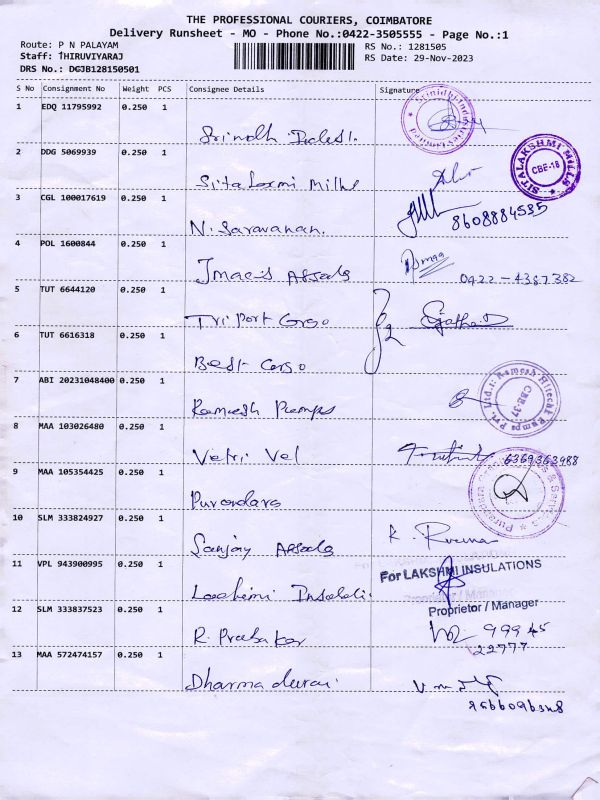 THE PROFESSIONAL COURIERS, COIMBATORE
Delivery Runsheet - MO - Phone No.:0422-3505555 - Page No.:1
Route: P N PALAYAM
RS No.: 1281505
Staff: THIRUVIYARAJ
RS Date: 29-Nov-2023
DRS No.: DGJB128150501
S No Consignment No Weight PCS Consignee Details Signature
1 EDQ 11795992 0.250 1
2 DDG 5069939 0.250 1
SITALAKSHMI MILLS CBE-16
Sitalaxmi Mills
3 CGL 100017619 0.250 1
N. Saravanan. 8608884535
4 POL 1600844 0.250 1
0422-4387382
5 TUT 6644120 0.250 1
Triport Corso
6 TUT 6616318 0.250 1
Best Corso
7 ABI 20231048400 0.250 1
CBE-37
Ramesh Pumps
8 MAA 103026480 0.250 1
Vetri Vel 6369363988
9 MAA 105354425 0.250 1
10 SLM 333824927 0.250 1
Sanjay
11 VPL 943900995 0.250 1
For LAKSHMI INSULATIONS
Proprietor / Manager
12 SLM 333837523 0.250 1
R. Prabakar 99945
22777
13 MAA 572474157 0.250 1
Dharmadurai